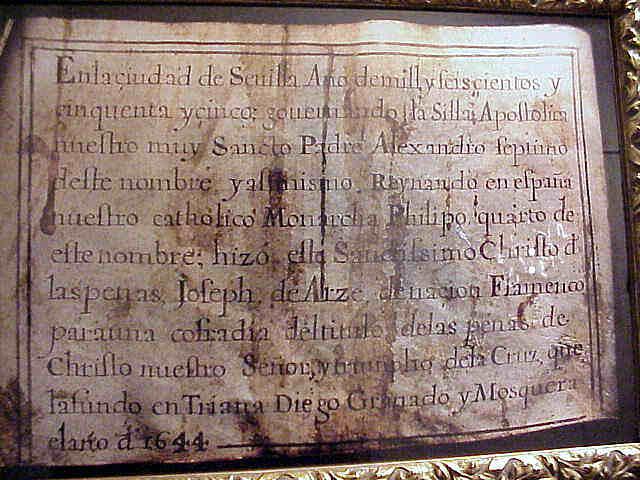 En la çiudad de Seuilla Año de mill y seisçientos y
çinquenta y çinco; gouernando la Silla Apostolica
nuestro muy Sancto Padre Alexandro septimo
deste nombre, y assimismo, Reynando en españa
nuestro catholico Monarcha Philipo quarto de
este nombre; hizo este Sanctissimo Christo d
las penas, Joseph, de Arze, de nacion Flamenco
para una cofradia del titulo de las penas de
Christo nuestro Señor, y triumpho de la Cruz, que
la fundo en Triana Diego Granado y Mosquera
el año d 1644